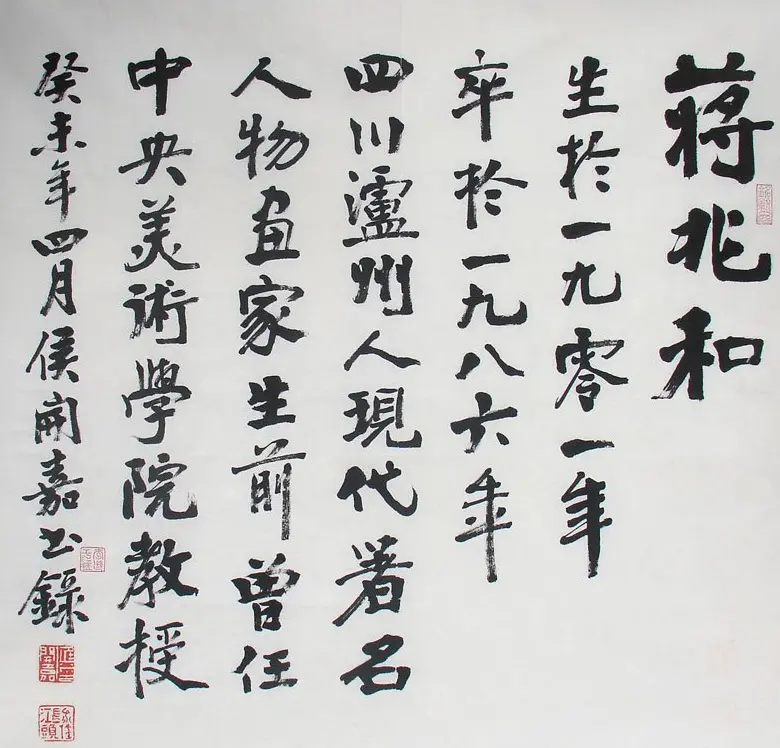 蔣兆和
生於一九零一年
卒於一九八六年
四川瀘州人現代著名
人物畫家生前曾任
中央美術學院教授
癸未年四月侯開嘉书錄